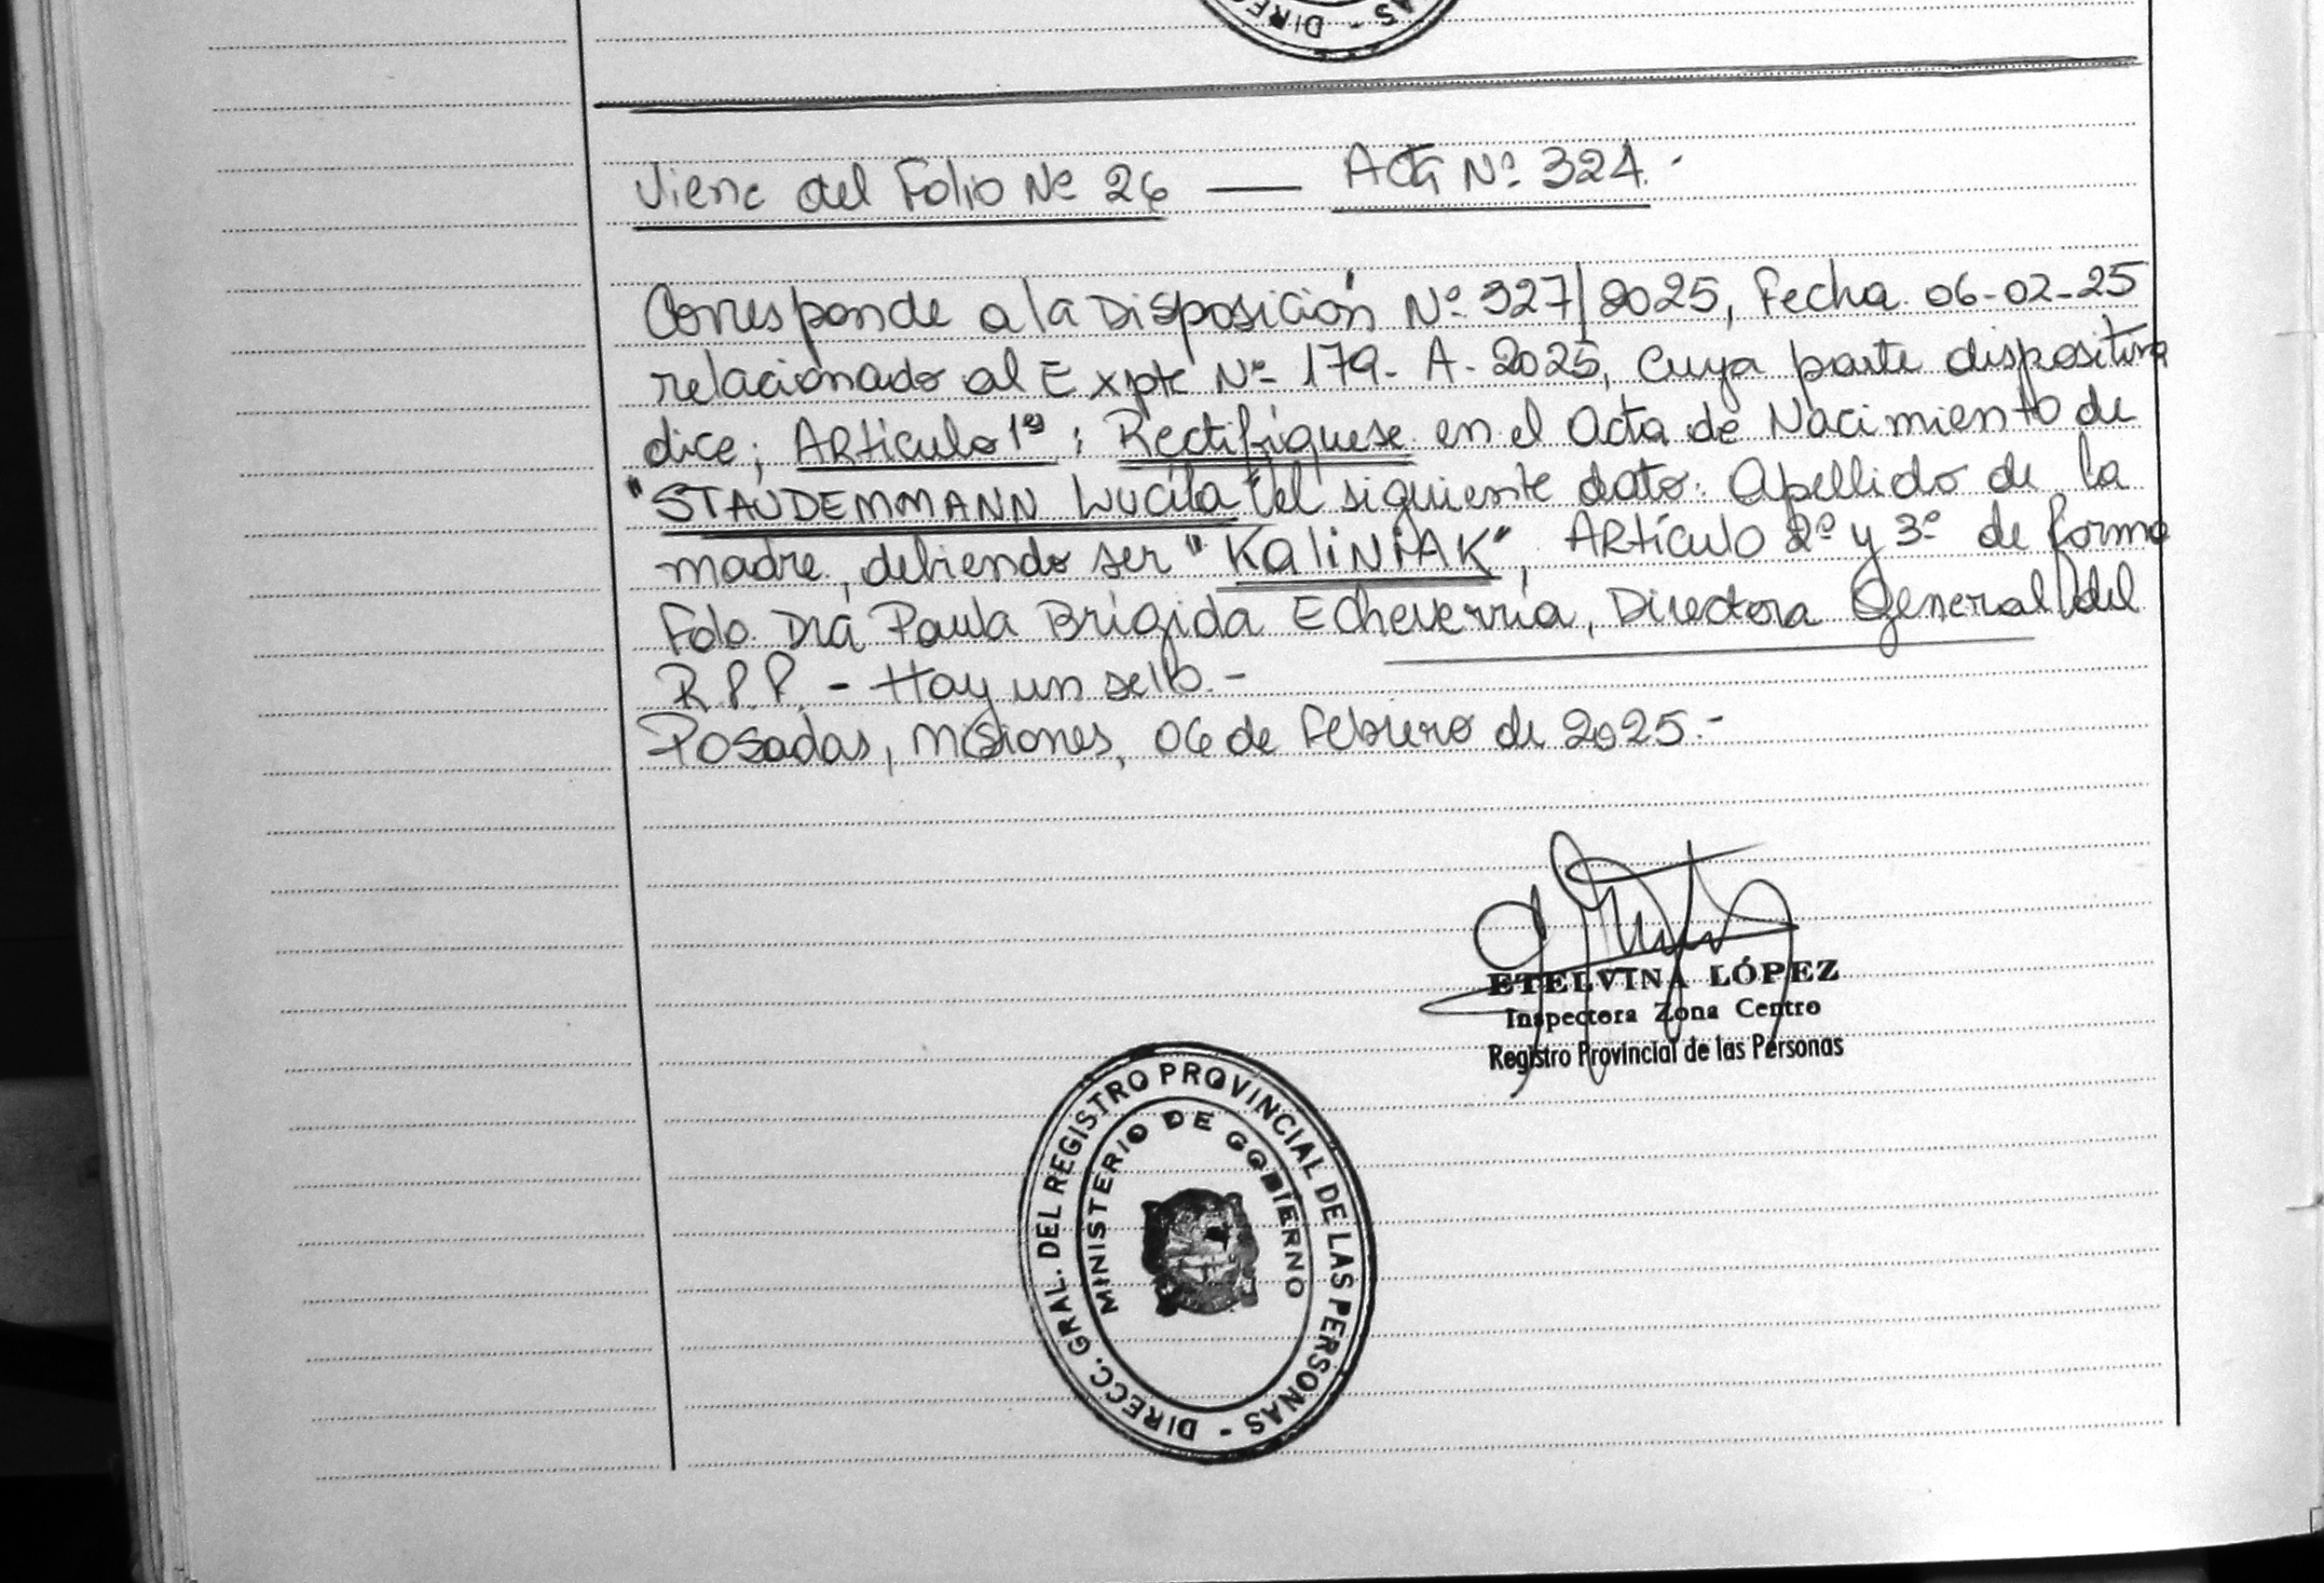 DIRECC. AS -
Viene del Folio Nº 26 — Acta Nº 324.-
Corresponde a la Disposición Nº 327/2025, Fecha 06-02-25
relacionado al Expte Nº 179- A- 2025, cuya parte dispositiva
dice; Artículo 1º: Rectifíquese en el Acta de Nacimiento de
"STAUDEMMANN Lucila" el siguiente dato: Apellido de la
madre, debiendo ser "KALINIAK", Artículo 2º y 3º de forma
Fdo. Dra Paula Brígida Echeverría, Directora General del
R.P.P. - Hay un sello.-
Posadas, Misiones, 06 de Febrero de 2025.-
ETELVINA LÓPEZ
Inspectora Zona Centro
Registro Provincial de las Personas
DIRECC. GRAL. DEL REGISTRO PROVINCIAL DE LAS PERSONAS -
MINISTERIO DE GOBIERNO